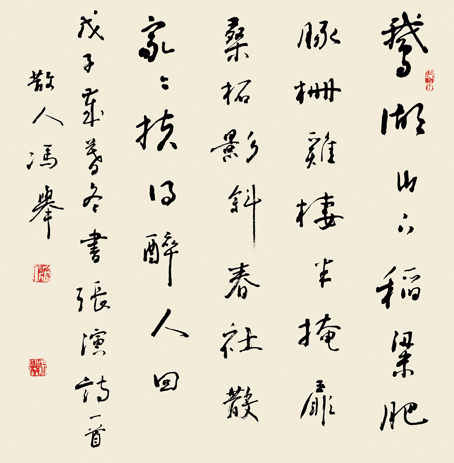 鵝湖山下稻粱肥
豚柵雞棲半掩扉
桑柘影斜春社散
家々扶得醉人回
戊子歲暮冬書張演詩一首
散人馮舉